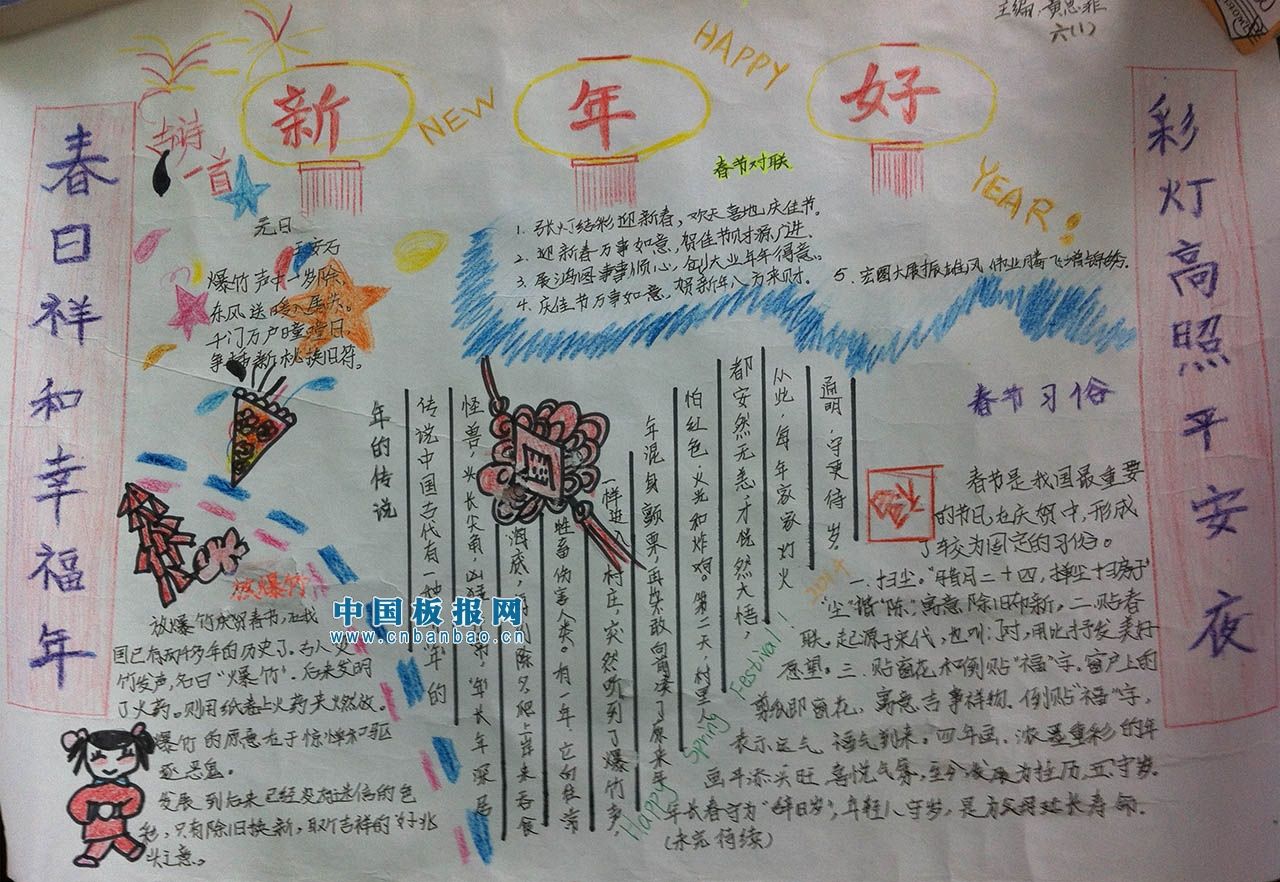 主编:黄思菲
六(1)
新年好
HAPPY
NEW
YEAR!
春日祥和幸福年
彩灯高照平安夜
古诗
一首
元日
王安石
爆竹声中一岁除,
东风送暖入屠苏。
千门万户曈曈日,
争插新桃换旧符。
春节对联
1. 张灯结彩迎新春,欢天喜地庆佳节。
2. 迎新春万事如意,贺佳节财源广进。
3. 展鸿图事事倾心,创大业年年得意。
4. 庆佳节万事如意,贺新年八方来财。
5. 宏图大展振雄风 伟业腾飞增锦绣.
放爆竹
放爆竹庆贺春节,在我
国已有两千多年的历史了。古人火
竹发声,名曰“爆竹”。后来发明
了火药。则用纸卷上火药来燃放。
爆竹的原意在于惊惮和驱
逐恶鬼。
发展到后来已经没有迷信的色
彩,只有除旧换新,取个吉祥的好兆
头之意。
年的传说
传说中国古代有一种 年的
怪兽,头长尖角,凶 “年”长年深居
海底, 除夕爬上岸来吞食
牲畜伤害人类。有一年,它向往常
一样进 村庄,突然听到了爆竹声
年混身颤栗,再也不敢向 了原来年
怕红色、火光和炸响。第二天,村里人
都安然无恙才恍然大悟,
从此,每年家家灯火
通明,守更待岁。
Happy Spring Festival!
2014
春节习俗
春节是我国最重要
的节日,在庆贺中,形成
了较为固定的习俗。
一、扫尘。“腊月二十四,掸尘扫房子”
“尘”谐“陈”,寓意除旧布新。二、贴春
联,起源于宋代,
愿望。三、贴窗花和倒贴“福”字。窗户上的
剪纸即窗花,寓意吉事祥物。倒贴“福”字,
表示运气、福气到来。四、年画、浓墨重彩的年
画平添 喜悦气氛, 发展为挂历,五、守岁。
年长者守为“辞旧岁”,年轻人守岁,是为父母延长寿命.
(未完待续)
中国板报网
www.cnbanbao.cn